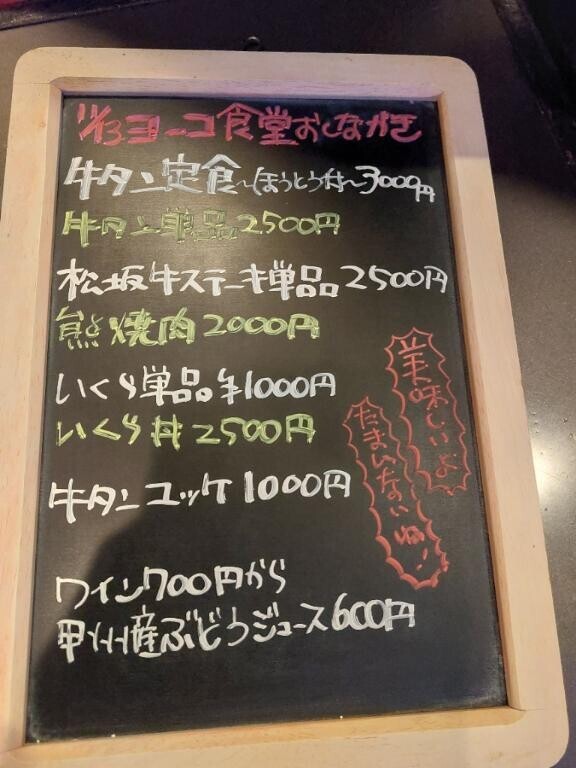 11/13ヨーコ食堂おしながき
牛タン定食~ほうとう付~3000円
牛タン単品2500円
松坂牛ステーキ単品2500円
熊焼肉2000円
いくら単品¥1000円
いくら丼2500円
牛タンユッケ1000円
美味しいよ
たまんないね!
ワイン700円から
甲州産ぶどうジュース600円